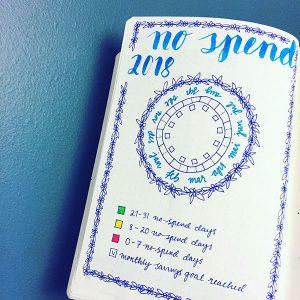 no spend
2018
jan
feb
mar
apr
may
jun
jul
aug
sep
oct
nov
dec
21-31 no-spend days
8-20 no-spend days
0-7 no-spend days
monthly savings goal reached